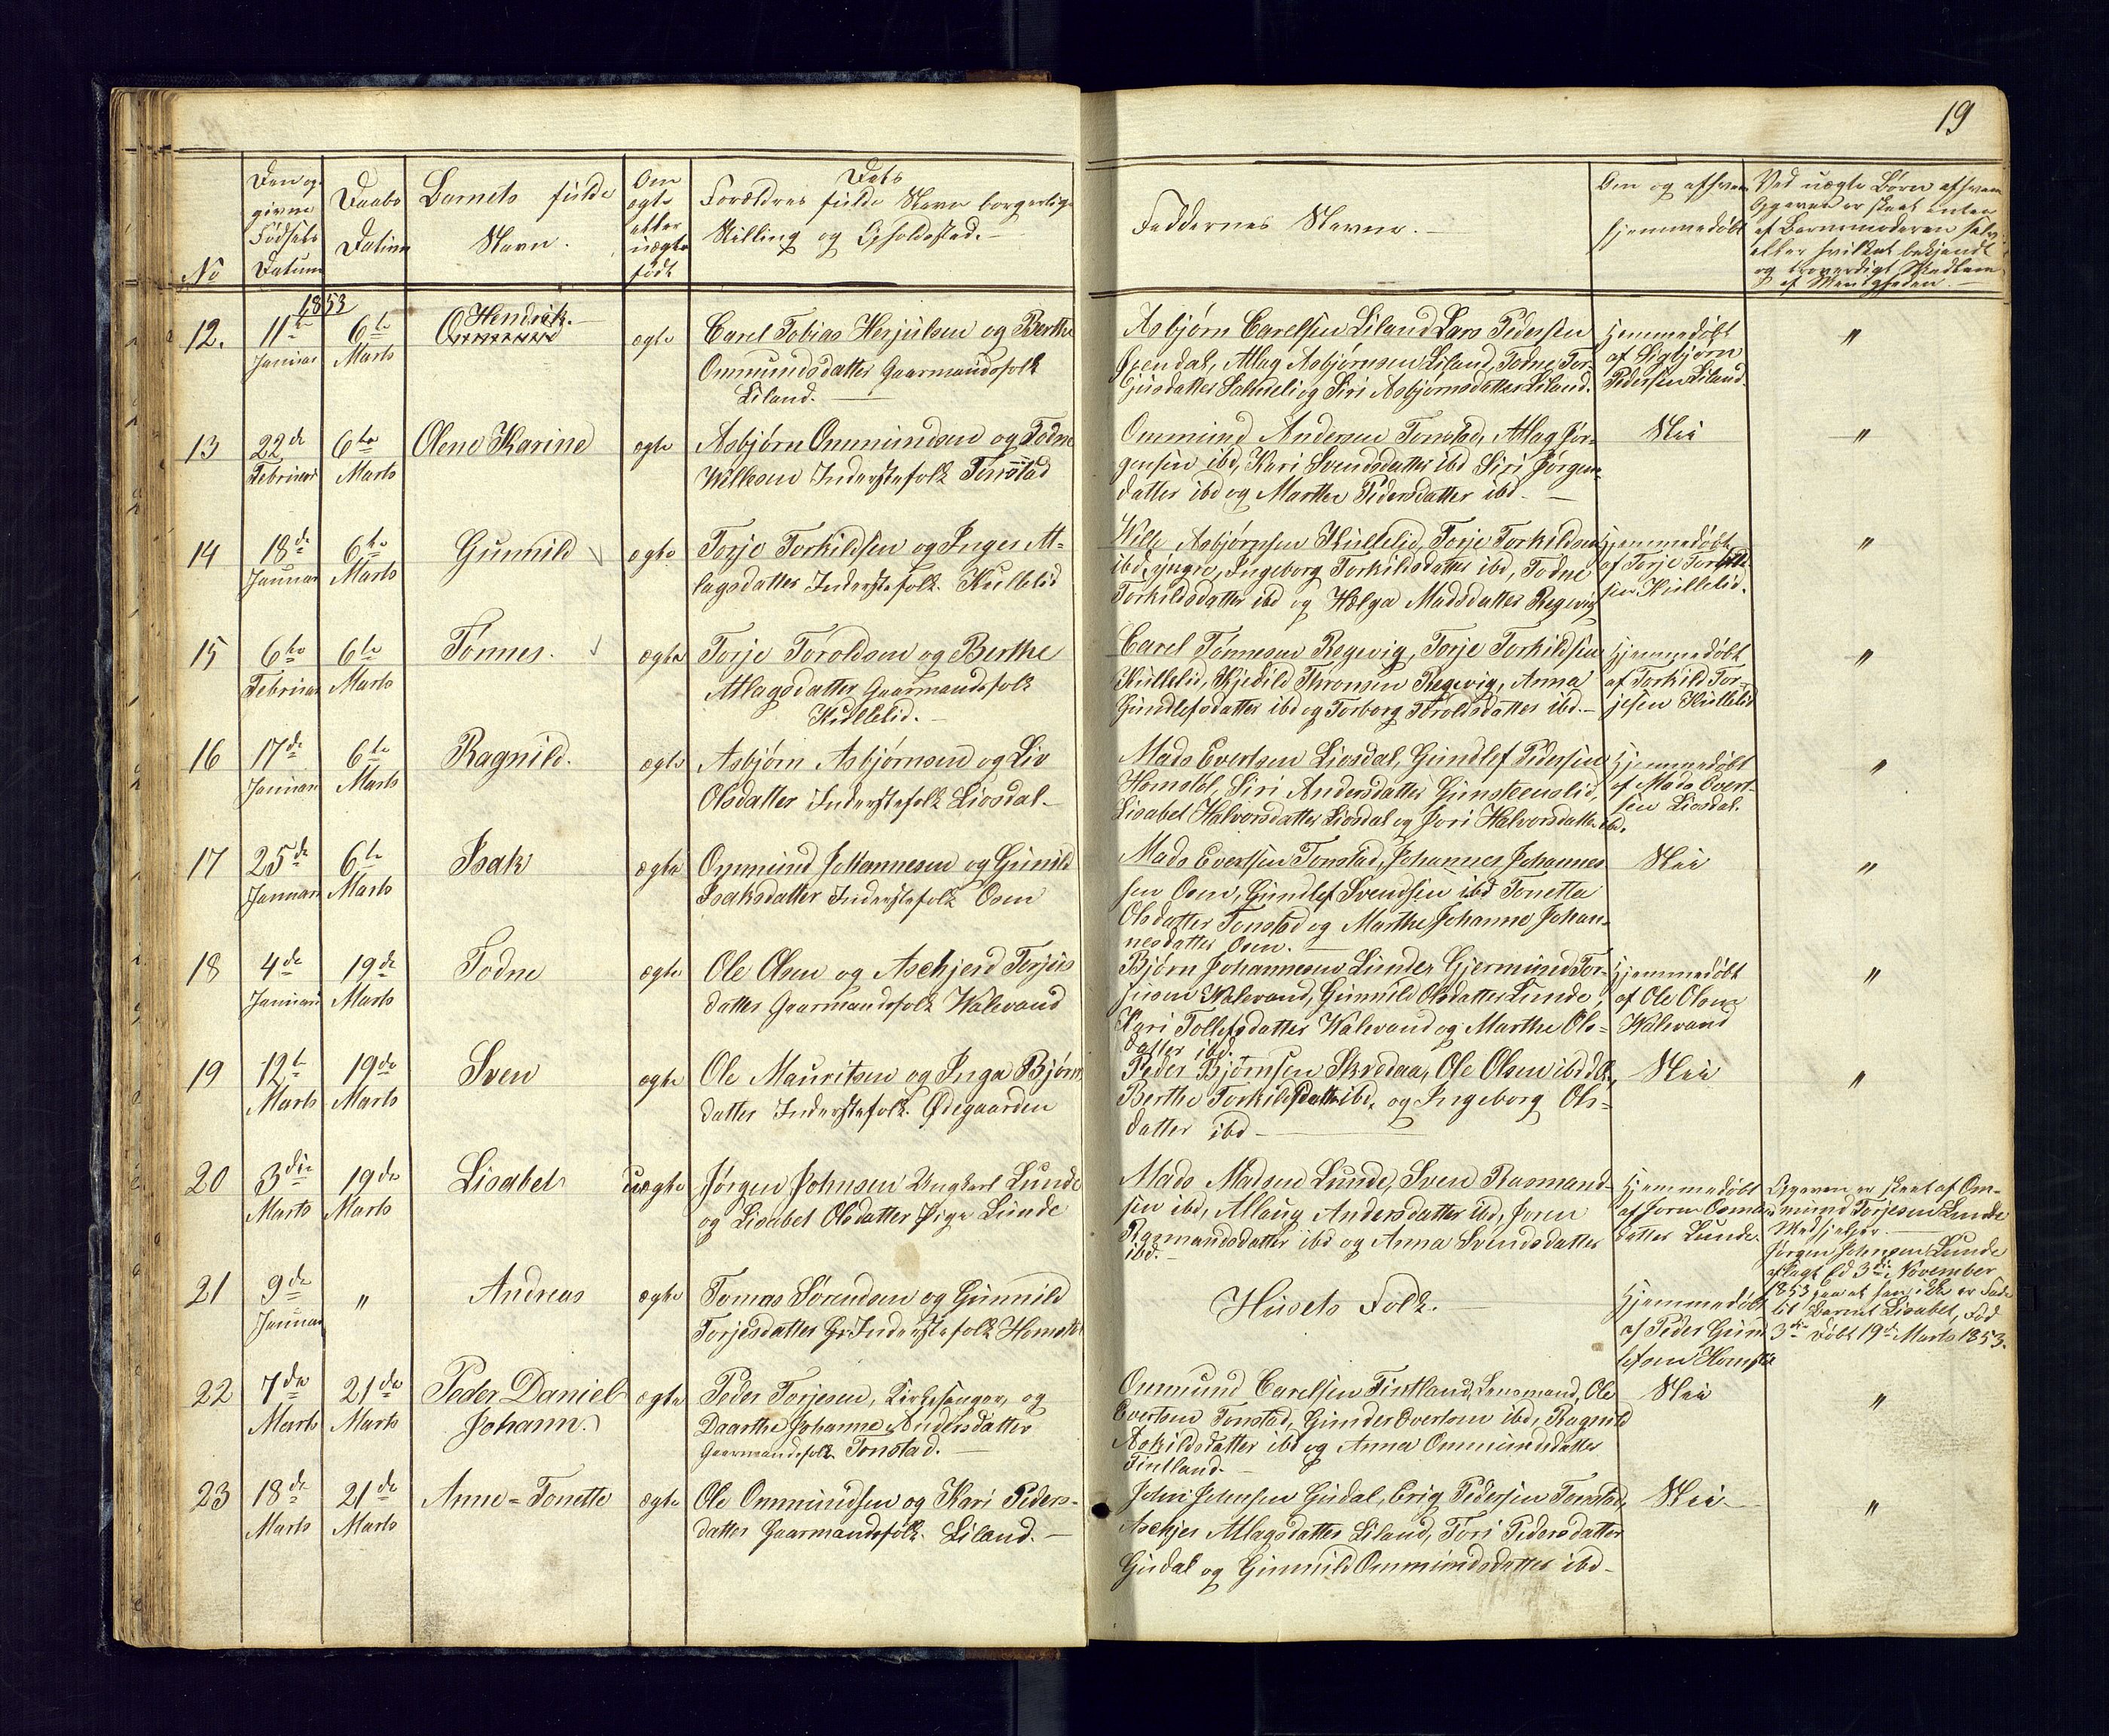 19
No
Den op-
givne
Fødsels
Datum
Daabs
Datum
Barnets fulde
Navn.
Om
ægte
eller
uægte
født
Dets
Forældres fulde Navn borgerlige
Stilling og Opholdssted.
Faddernes Navne.
Om og af hvem
hjemmedøbt
Ved uægte Børn af hvem
Opgaven er skeet enten
af Barnemoderen selv
eller hvilket bekjendt
og troværdigt Medlem
af Menigheden.
1853
12.
11te
Januar
6te
Marts
Hendrik.
ægte
Carel Tobias Herjulsen og Berthe
Ommundsdatter Gaarmandsfolk
Liland.
Asbjørn Carelsen Liland Lars Pedersen
Øpendal, Atlag Asbjørnsen Liland, Todne Tor-
gjusdatter Salmeli og Siri Asbjørnsdatter Liland.
hjemmedøbt
af Sigbjørn
Pedersen Liland.
"
13
22de
Februar
6te
Marts
Olene Karine
ægte
Asbjørn Ommundsen og Todne
Willesen Inderstefolk Tonstad
Ommund Andersen Tonstad, Atlag Jør-
gensen ibd, Kari Svendsdatter ibd Siri Jørgen-
datter ibd og Marthe Pedersdatter ibd.
Nei
"
14
18de
Januar
6te
Marts
Gunnild
ægte
Torje Torkildsen og Inger At-
lagsdatter Inderstefolk Kvillelid
Wille Asbjørnsen Kvillelid, Torje Torkildsen
ibd, yngre, Ingeborg Torkildsdatter ibd, Todne
Torkildsdatter ibd og Hælga Madsdatter Regevig
hjemmedøbt
af Torje Torkild-
sen Kvillelid.
"
15
6te
Februar
6te
Marts
Tønnes.
ægte
Torje Toroldsen og Berthe
Atlagsdatter Gaarmandsfolk
Kvillelid.
Carel Tønnesen Regevig, Torje Torkildsen
Kvillelid, Kjedild Thronsen Regevig, Anna
Gundlefsdatter ibd og Torborg Toroldsdatter ibd.
hjemmedøbt
af Torkild Tor-
jesen Kvillelid
"
16
17de
Januar
6te
Marts
Ragnild.
ægte
Asbjørn Asbjørnsen og Liv
Olsdatter Inderstefolk Liosdal.
Mads Evertsen Liosdal, Gundlef Pedersen
Homstøl, Siri Andersdatter Ginsteenslid,
Lisabet Halvorsdatter Liosdal og Jori Halvorsdatter ibd.
hjemmedøbt
af Mads Evert-
sen Liosdal.
"
17
25de
Januar
6te
Marts
Isak
ægte
Ommund Johannesen og Gunild
Isaksdatter Inderstefolk Osen
Mads Evertsen Tonstad, Johannes Johannes
sen Osen, Gundlef Svendsen ibd Tonetta
Olsdatter Tonstad og Marthe Johanne Johan-
nesdatter Osen.
Nei
"
18
4de
Januar
19de
Marts
Todne
ægte
Ole Olsen og Aschjerd Torjus
datter Gaarmandsfolk Walevand
Bjørn Johannesen Lunde, Gjermund Tor-
jusen Walevand, Gunnild Olsdatter Lunde,
Kari Tollefsdatter Walevand og Marthe Ols-
datter ibd.
hjemmedøbt
af Ole Olsen
Walevand
"
19
12te
Marts
19de
Marts
Sven
ægte
Ole Mauritsen og Inga Bjørns
datter Inderstefolk Ødegaarden
Peder Bjørnsen Skredaa, Ole Olsen ibd
Berthe Torkildsdatter ibd, og Ingeborg Ols-
datter ibd
Nei
"
20
3die
Marts
19de
Marts
Lisabet
uægte
Jørgen Johnsen Ungkarl Lunde
og Lisabet Olsdatter Pige Lunde
Mads Madsen Lunde, Sven Rasmund-
sen ibd, Allaug Andersdatter ibd, Joren
Rasmundsdatter ibd og Anna Svendsdatter
ibd.
hjemmedøbt
af Joren Osmunds
datter Lunde.
Opgaven er skeet af Om-
mund Torjesen Lunde
Medhjelper.
Jørgen Johnsen Lunde
aflagt Ed 3die November
1853 paa at han ikke er Fader
til Barnet Lisabet, Fød
3die Døbt 19de Marts 1853.
21
9de
Januar
"
Andreas
ægte
Tomas Sørendsen og Gunnild
Torjesdatter Inderstefolk Homstøl
Husets Folk.
hjemmedøbt
af Peder Gund
lefsen Homstøl
22
7de
Marts
21de
Marts
Peder Daniel
Johann.
ægte
Peder Torjesen, Kirkesanger, og
Daarthe Johanne Andersdatter
Gaarmandsfolk Tonstad.
Ommund Carelsen Fintland, Lensmand, Ole
Evertsen Tonstad, Gunder Evertsen ibd, Ragnild
Askildsdatter ibd og Anna Ommundsdatter
Fintland.
Nei
"
23
18de
Marts
21de
Marts
Anne=Tonette
ægte
Ole Ommundsen og Kari Peders-
datter Gaarmandsfolk Liland.
John Johnsen Gudal, Erig Pedersen Tonstad,
Aschjer Atlagsdatter Liland, Tori Pedersdatter
Gudal og Gunnild Ommundsdatter ibd
Nei
"